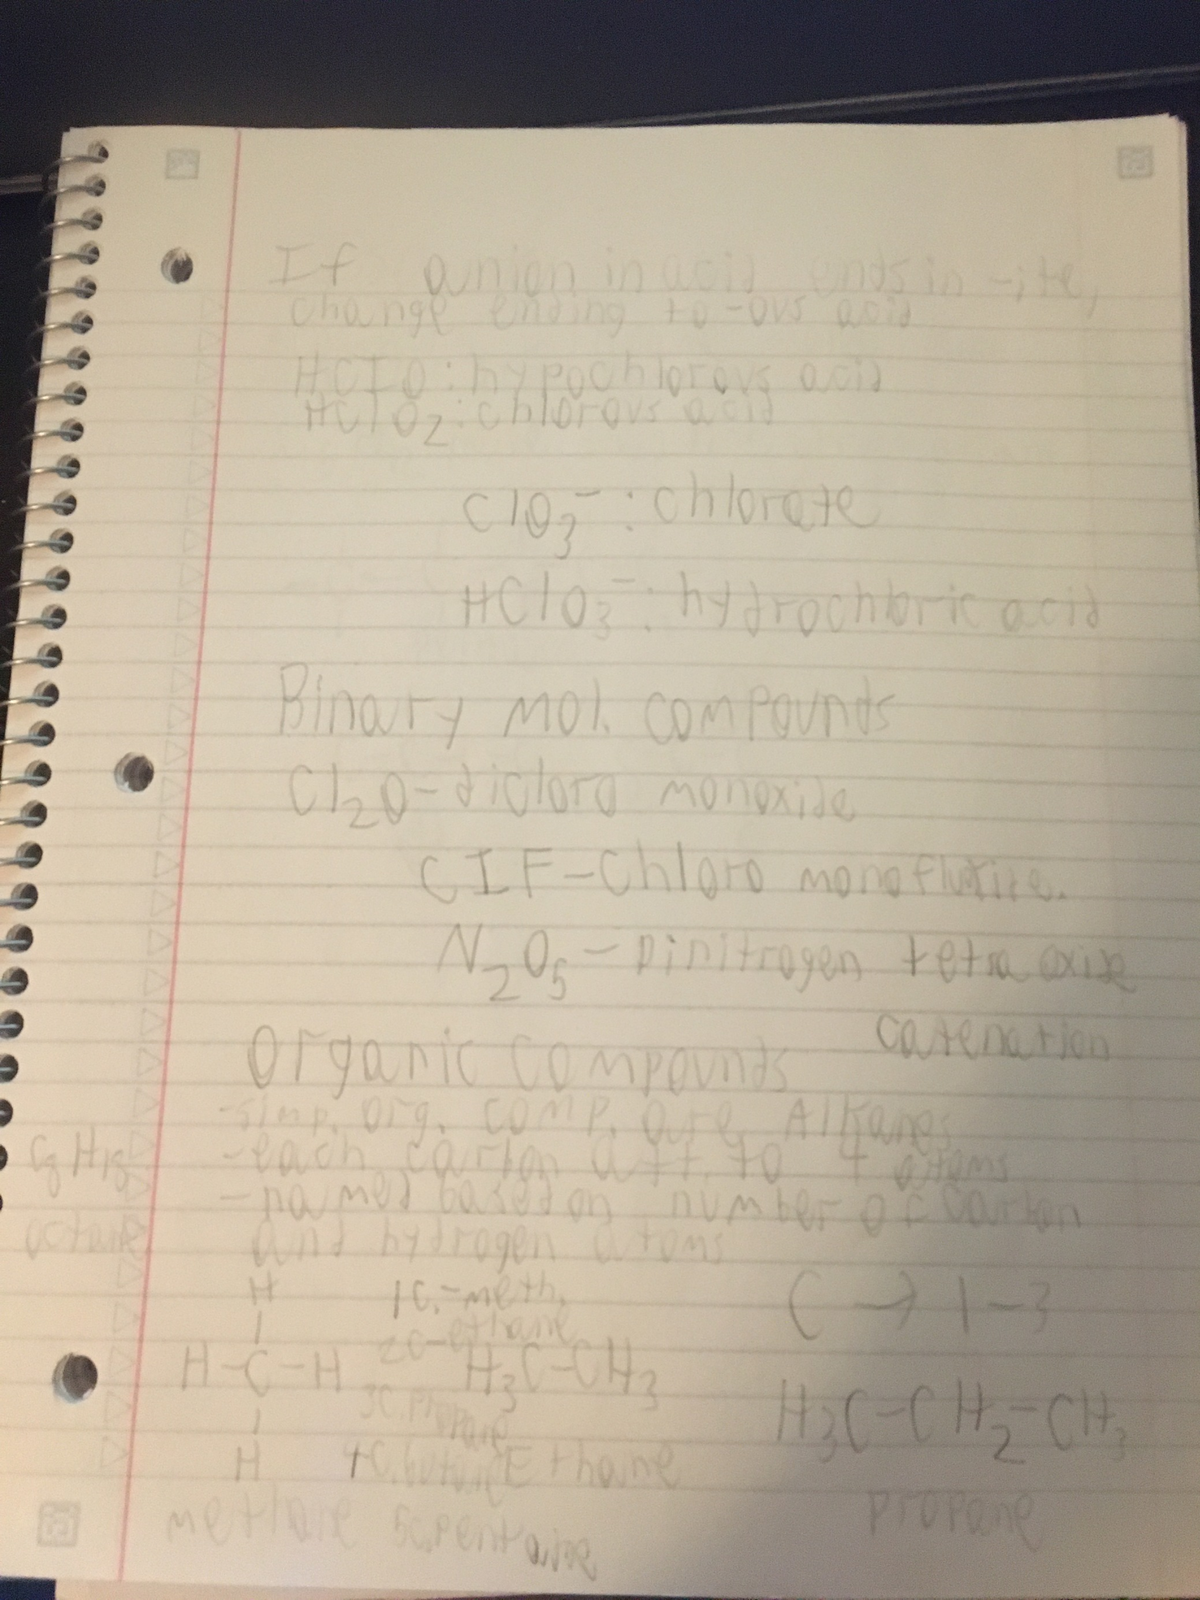 If anion in acid ends in -ite,
change ending to -ous acid
HClO: hypochlorous acid
HClO2: chlorous acid
ClO3-: chlorate
HClO3-: hydrochloric acid
Binary mol. compounds
Cl2O-dicloro monoxide
ClF-Chloro monofluride.
N2O5-Dinitrogen tetra oxide
catenation
Organic compounds
-simp. org. comp. are Alkanes
-each carbon att. to 4 atoms
-named based on number of carbon
and hydrogen atoms
C8H18
octane
H
H-C-H
H
methane
1C.-meth.
2C-ethane
3C.propane
4C.butane
5C.pentane
H3C-CH3
Ethane
C → 1-3
H3C-CH2-CH3
propane